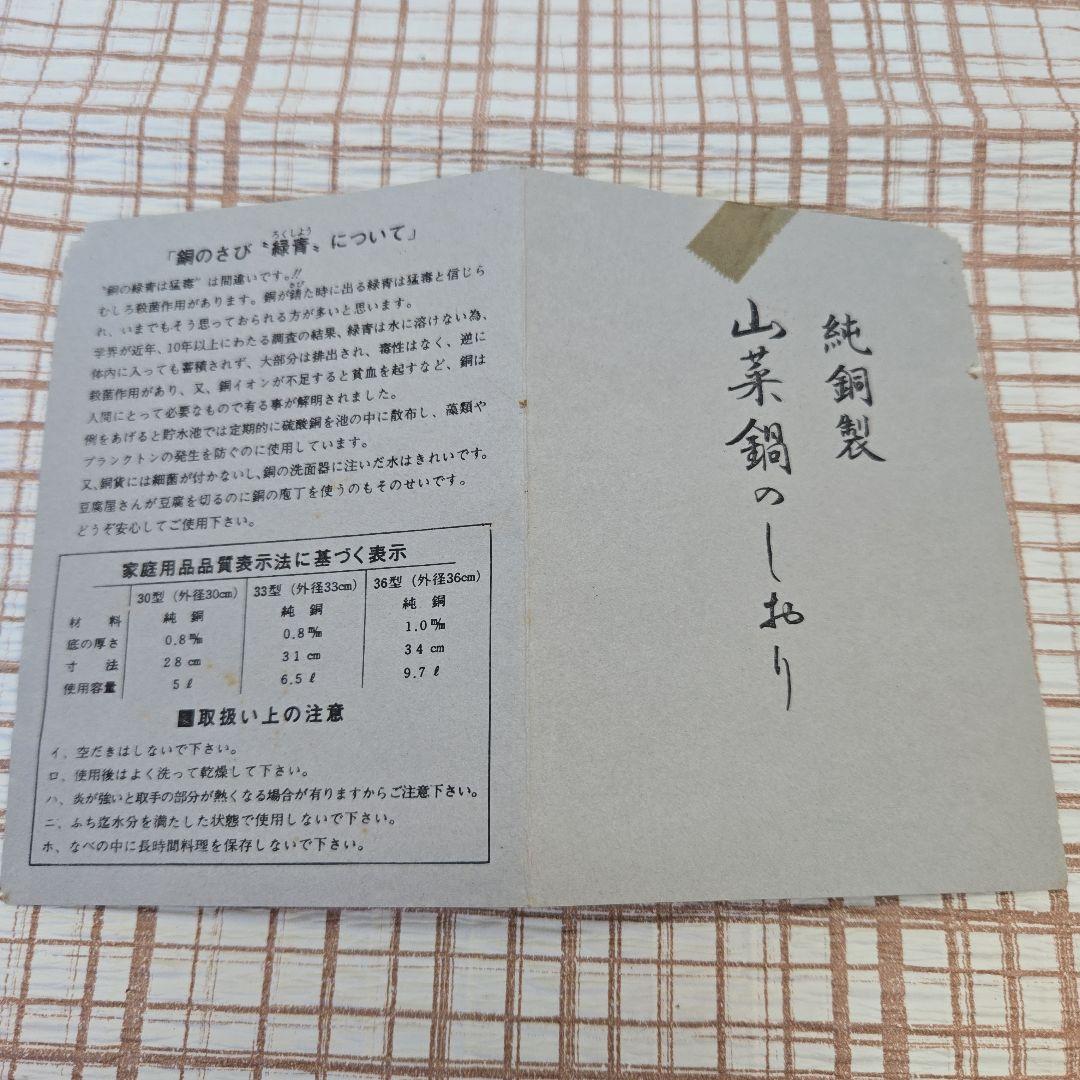 純銅製
山菜鍋のしおり
「銅のさび〝緑青〟について」
ろくしょう
〝銅の緑青は猛毒〟は間違いです。!!
むしろ殺菌作用があります。銅が錆た時に出る緑青は猛毒と信じら
さび
れ、いまでもそう思っておられる方が多いと思います。
学界が近年、10年以上にわたる調査の結果、緑青は水に溶けない為、
体内に入っても蓄積されず、大部分は排出され、毒性はなく、逆に
殺菌作用があり、又、銅イオンが不足すると貧血を起すなど、銅は
人間にとって必要なもので有る事が解明されました。
例をあげると貯水池では定期的に硫酸銅を池の中に散布し、藻類や
プランクトンの発生を防ぐのに使用しています。
又、銅貨には細菌が付かないし、銅の洗面器に注いだ水はきれいです。
豆腐屋さんが豆腐を切るのに銅の庖丁を使うのもそのせいです。
どうぞ安心してご使用下さい。
家庭用品品質表示法に基づく表示
30型（外径30㎝） 33型（外径33㎝） 36型（外径36㎝）
材料 純銅 純銅 純銅
底の厚さ 0.8㎜ 0.8㎜ 1.0㎜
寸法 28㎝ 31㎝ 34㎝
使用容量 5ℓ 6.5ℓ 9.7ℓ
取扱い上の注意
イ、空だきはしないで下さい。
ロ、使用後はよく洗って乾燥して下さい。
ハ、炎が強いと取手の部分が熱くなる場合が有りますからご注意下さい。
ニ、ふち迄水分を満たした状態で使用しないで下さい。
ホ、なべの中に長時間料理を保存しないで下さい。